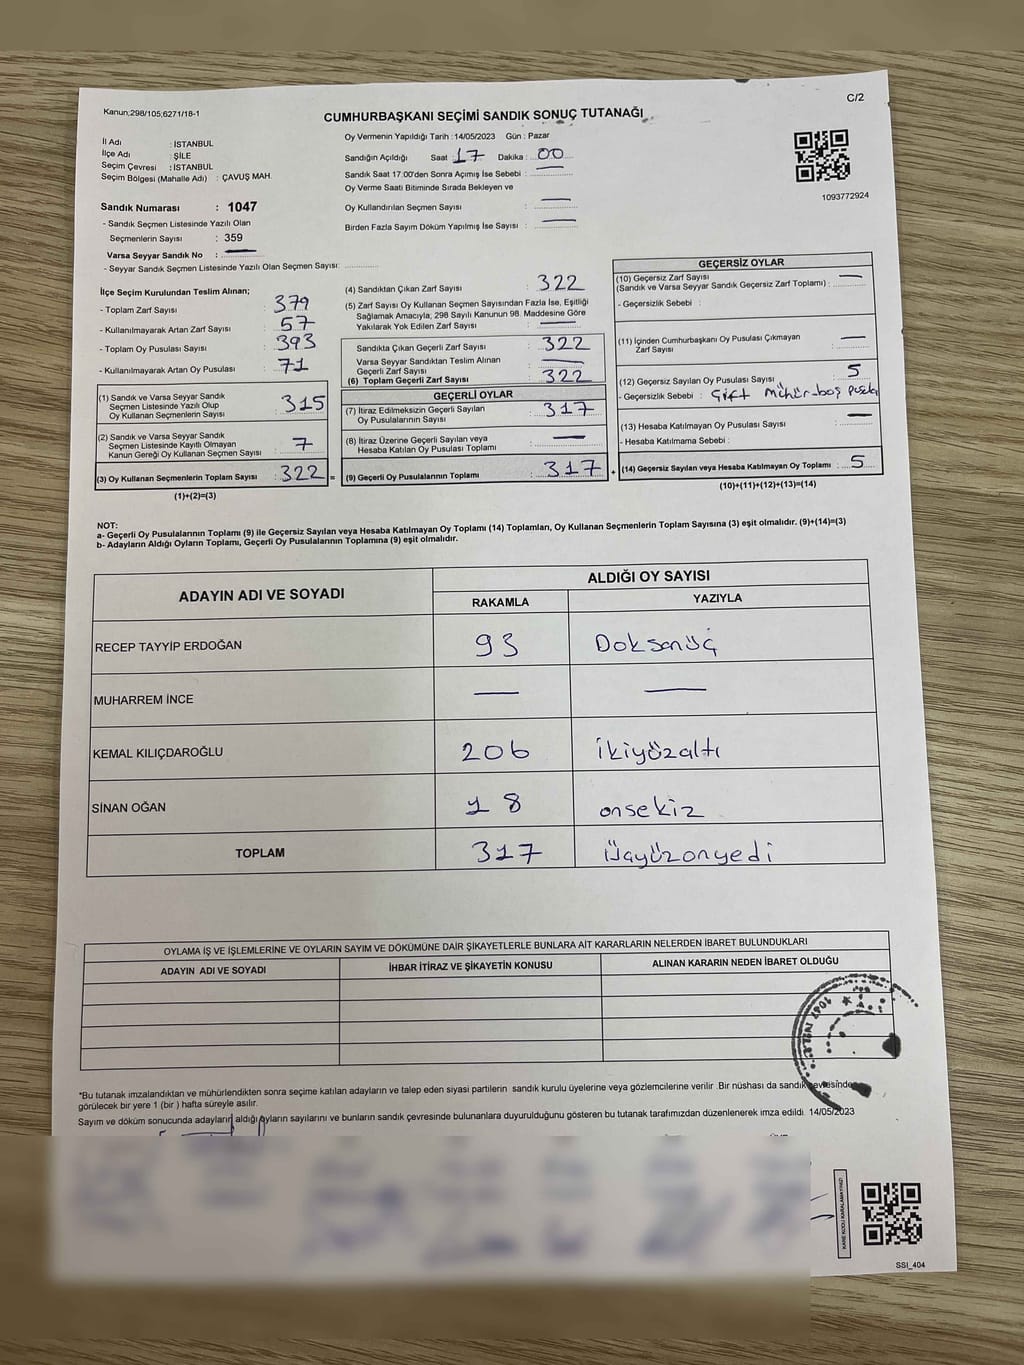 Kanun;298/105;6271/18-1
C/2
CUMHURBAŞKANI SEÇİMİ SANDIK SONUÇ TUTANAĞI
İl Adı : İSTANBUL
İlçe Adı : ŞİLE
Seçim Çevresi : İSTANBUL
Seçim Bölgesi (Mahalle Adı) : ÇAVUŞ MAH.
Sandık Numarası : 1047
- Sandık Seçmen Listesinde Yazılı Olan
Seçmenlerin Sayısı : 359
Varsa Seyyar Sandık No : —
- Seyyar Sandık Seçmen Listesinde Yazılı Olan Seçmen Sayısı:
Oy Vermenin Yapıldığı Tarih : 14/05/2023 Gün : Pazar
Sandığın Açıldığı Saat : 17 Dakika : 00
Sandık Saat 17:00'den Sonra Açımış İse Sebebi : —
Oy Verme Saati Bitiminde Sırada Bekleyen ve
Oy Kullandırılan Seçmen Sayısı : —
Birden Fazla Sayım Döküm Yapılmış İse Sayısı : —
1093772924
İlçe Seçim Kurulundan Teslim Alınan;
- Toplam Zarf Sayısı : 379
- Kullanılmayarak Artan Zarf Sayısı : 57
- Toplam Oy Pusulası Sayısı : 393
- Kullanılmayarak Artan Oy Pusulası : 71
(1) Sandık ve Varsa Seyyar Sandık
Seçmen Listesinde Yazılı Olup
Oy Kullanan Seçmenlerin Sayısı : 315
(2) Sandık ve Varsa Seyyar Sandık
Seçmen Listesinde Kayıtlı Olmayan
Kanun Gereği Oy Kullanan Seçmen Sayısı : 7
(3) Oy Kullanan Seçmenlerin Toplam Sayısı : 322 =
(1)+(2)=(3)
(4) Sandıktan Çıkan Zarf Sayısı : 322
(5) Zarf Sayısı Oy Kullanan Seçmen Sayısından Fazla İse, Eşitliği
Sağlamak Amacıyla; 298 Sayılı Kanunun 98. Maddesine Göre
Yakılarak Yok Edilen Zarf Sayısı : —
Sandıkta Çıkan Geçerli Zarf Sayısı : 322
Varsa Seyyar Sandıktan Teslim Alınan
Geçerli Zarf Sayısı : —
(6) Toplam Geçerli Zarf Sayısı : 322
GEÇERLİ OYLAR
(7) İtiraz Edilmeksizin Geçerli Sayılan
Oy Pusulalarının Sayısı : 317
(8) İtiraz Üzerine Geçerli Sayılan veya
Hesaba Katılan Oy Pusulası Toplamı : —
(9) Geçerli Oy Pusulalarının Toplamı : 317 +
GEÇERSİZ OYLAR
(10) Geçersiz Zarf Sayısı
(Sandık ve Varsa Seyyar Sandık Geçersiz Zarf Toplamı) : —
- Geçersizlik Sebebi :
(11) İçinden Cumhurbaşkanı Oy Pusulası Çıkmayan
Zarf Sayısı : —
(12) Geçersiz Sayılan Oy Pusulası Sayısı : 5
- Geçersizlik Sebebi : Çift mühür-boş pusula
(13) Hesaba Katılmayan Oy Pusulası Sayısı : —
- Hesaba Katılmama Sebebi :
(14) Geçersiz Sayılan veya Hesaba Katılmayan Oy Toplamı : 5
(10)+(11)+(12)+(13)=(14)
NOT:
a- Geçerli Oy Pusulalarının Toplamı (9) ile Geçersiz Sayılan veya Hesaba Katılmayan Oy Toplamı (14) Toplamları, Oy Kullanan Seçmenlerin Toplam Sayısına (3) eşit olmalıdır. (9)+(14)=(3)
b- Adayların Aldığı Oyların Toplamı, Geçerli Oy Pusulalarının Toplamına (9) eşit olmalıdır.
ADAYIN ADI VE SOYADI ALDIĞI OY SAYISI
RAKAMLA YAZIYLA
RECEP TAYYİP ERDOĞAN 93 Doksanüç
MUHARREM İNCE — —
KEMAL KILIÇDAROĞLU 206 ikiyüzaltı
SİNAN OĞAN 18 onsekiz
TOPLAM 317 üçyüzonyedi
OYLAMA İŞ VE İŞLEMLERİNE VE OYLARIN SAYIM VE DÖKÜMÜNE DAİR ŞİKAYETLERLE BUNLARA AİT KARARLARIN NELERDEN İBARET BULUNDUKLARI
ADAYIN ADI VE SOYADI İHBAR İTİRAZ VE ŞİKAYETİN KONUSU ALINAN KARARIN NEDEN İBARET OLDUĞU
*Bu tutanak imzalandıktan ve mühürlendikten sonra seçime katılan adayların ve talep eden siyasi partilerin sandık kurulu üyelerine veya gözlemcilerine verilir .Bir nüshası da sandık çevresinde
görülecek bir yere 1 (bir ) hafta süreyle asılır.
Sayım ve döküm sonucunda adayların aldığı oyların sayılarını ve bunların sandık çevresinde bulunanlara duyurulduğunu gösteren bu tutanak tarafımızdan düzenlenerek imza edildi. 14/05/2023
KARE KODU KARALAMAYINIZ!
SSI_404